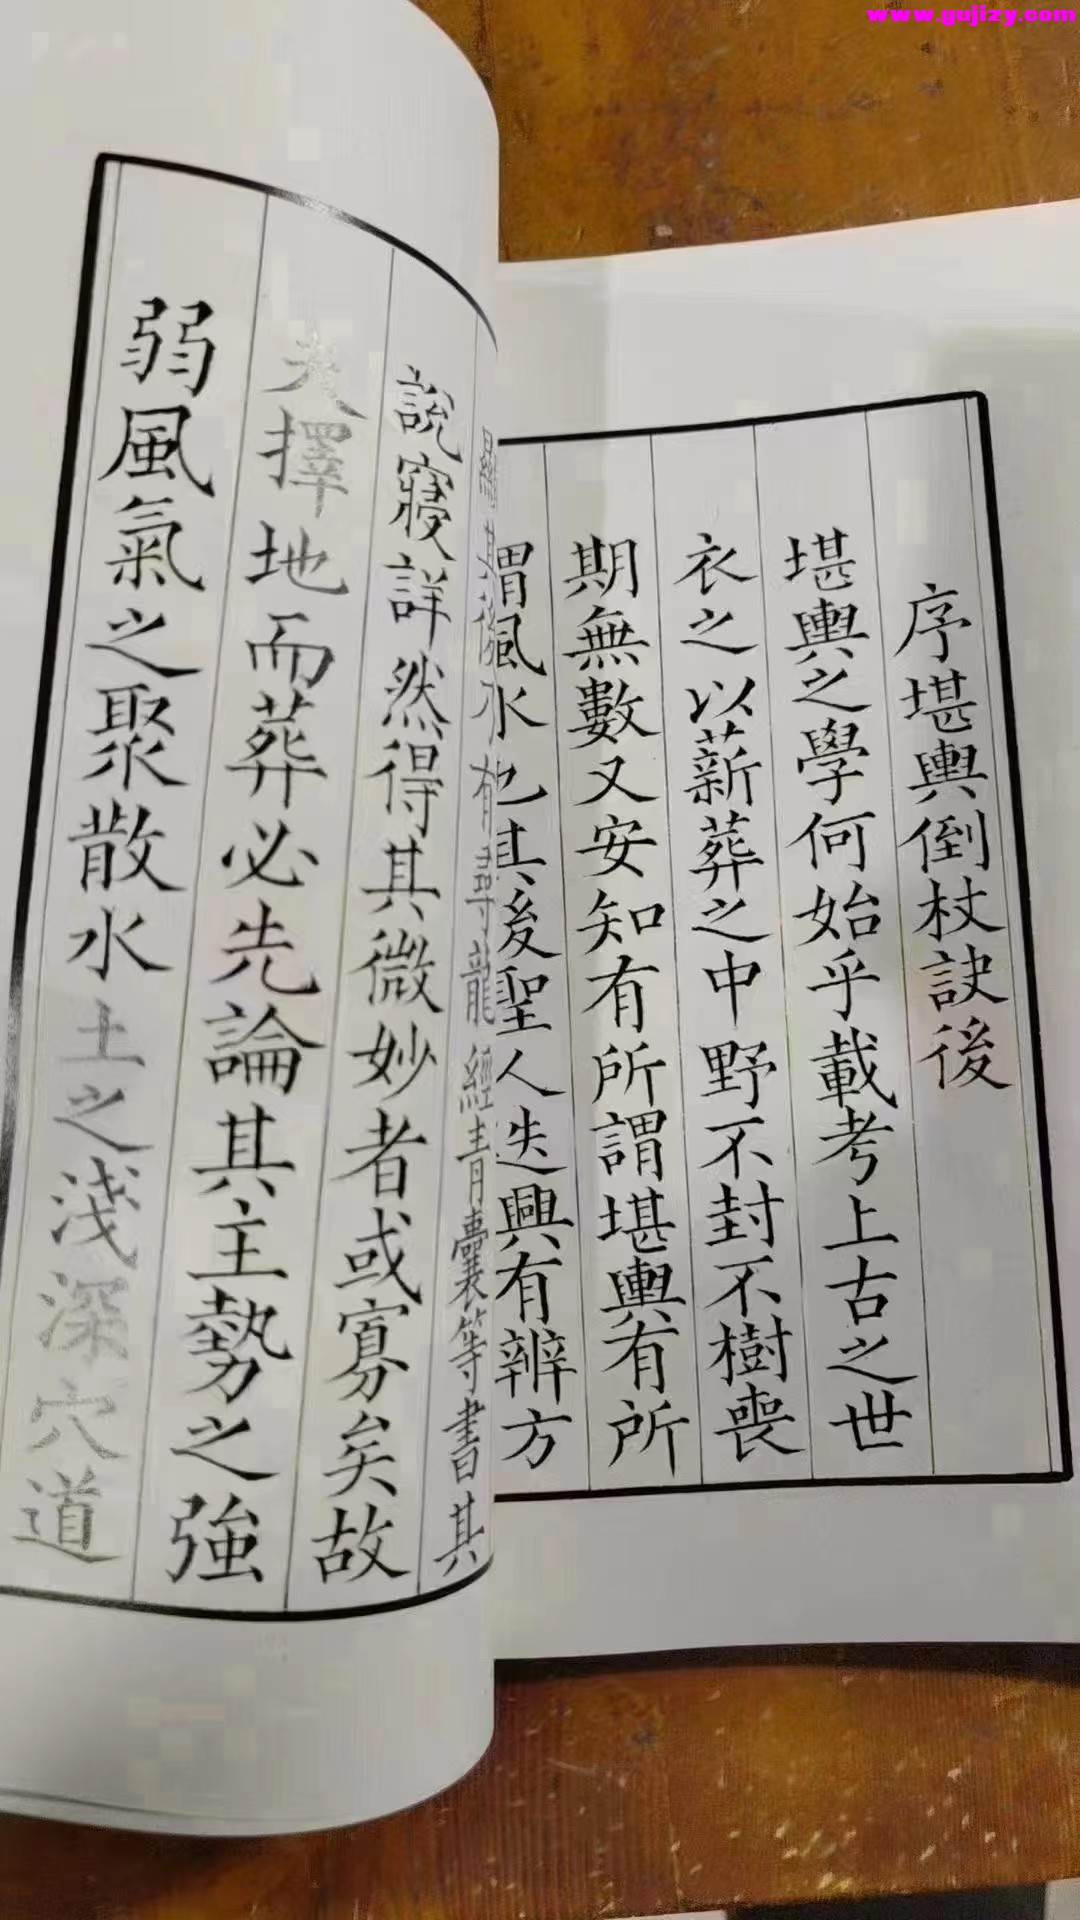 www.gujizy.com
序堪輿倒杖訣後
堪輿之學何始乎載考上古之世
衣之以薪葬之中野不封不樹喪
期無數又安知有所謂堪輿有所
謂風水也其後聖人迭興有辨方
其後風水有尋龍經青囊等書其
說寖詳然得其微妙者或寡矣故
夫擇地而葬必先論其主勢之強
弱風氣之聚散水土之淺深穴道